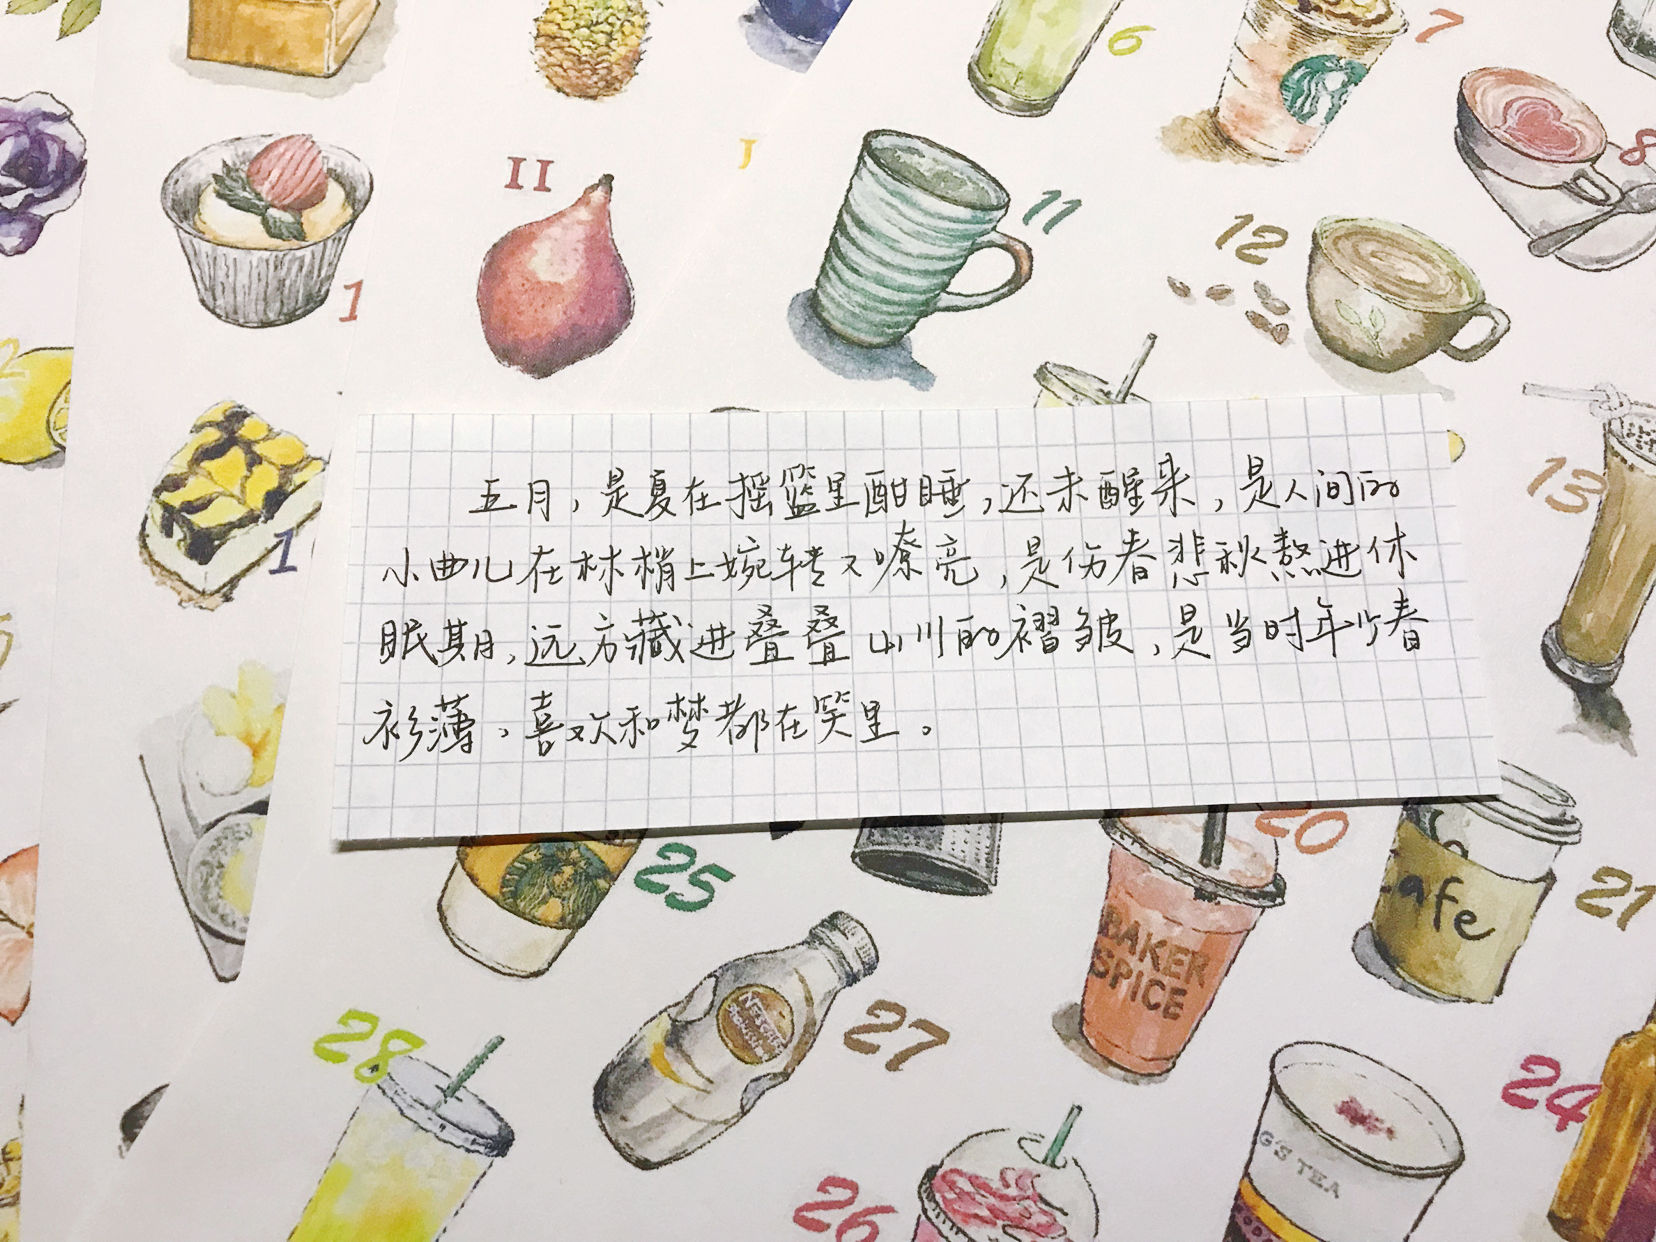 6
7
8
II
11
12
1
五月，是夏在摇篮里酣睡，还未醒来，是人间的
小曲儿在林梢上婉转又嘹亮，是伤春悲秋熬进休
眠期，远方藏进叠叠山川的褶皱，是当时年少春
衫薄，喜欢和梦都在笑里。
13
1
20
21
25
BAKER
SPICE
afe
27
28
24
26
G'S TEA